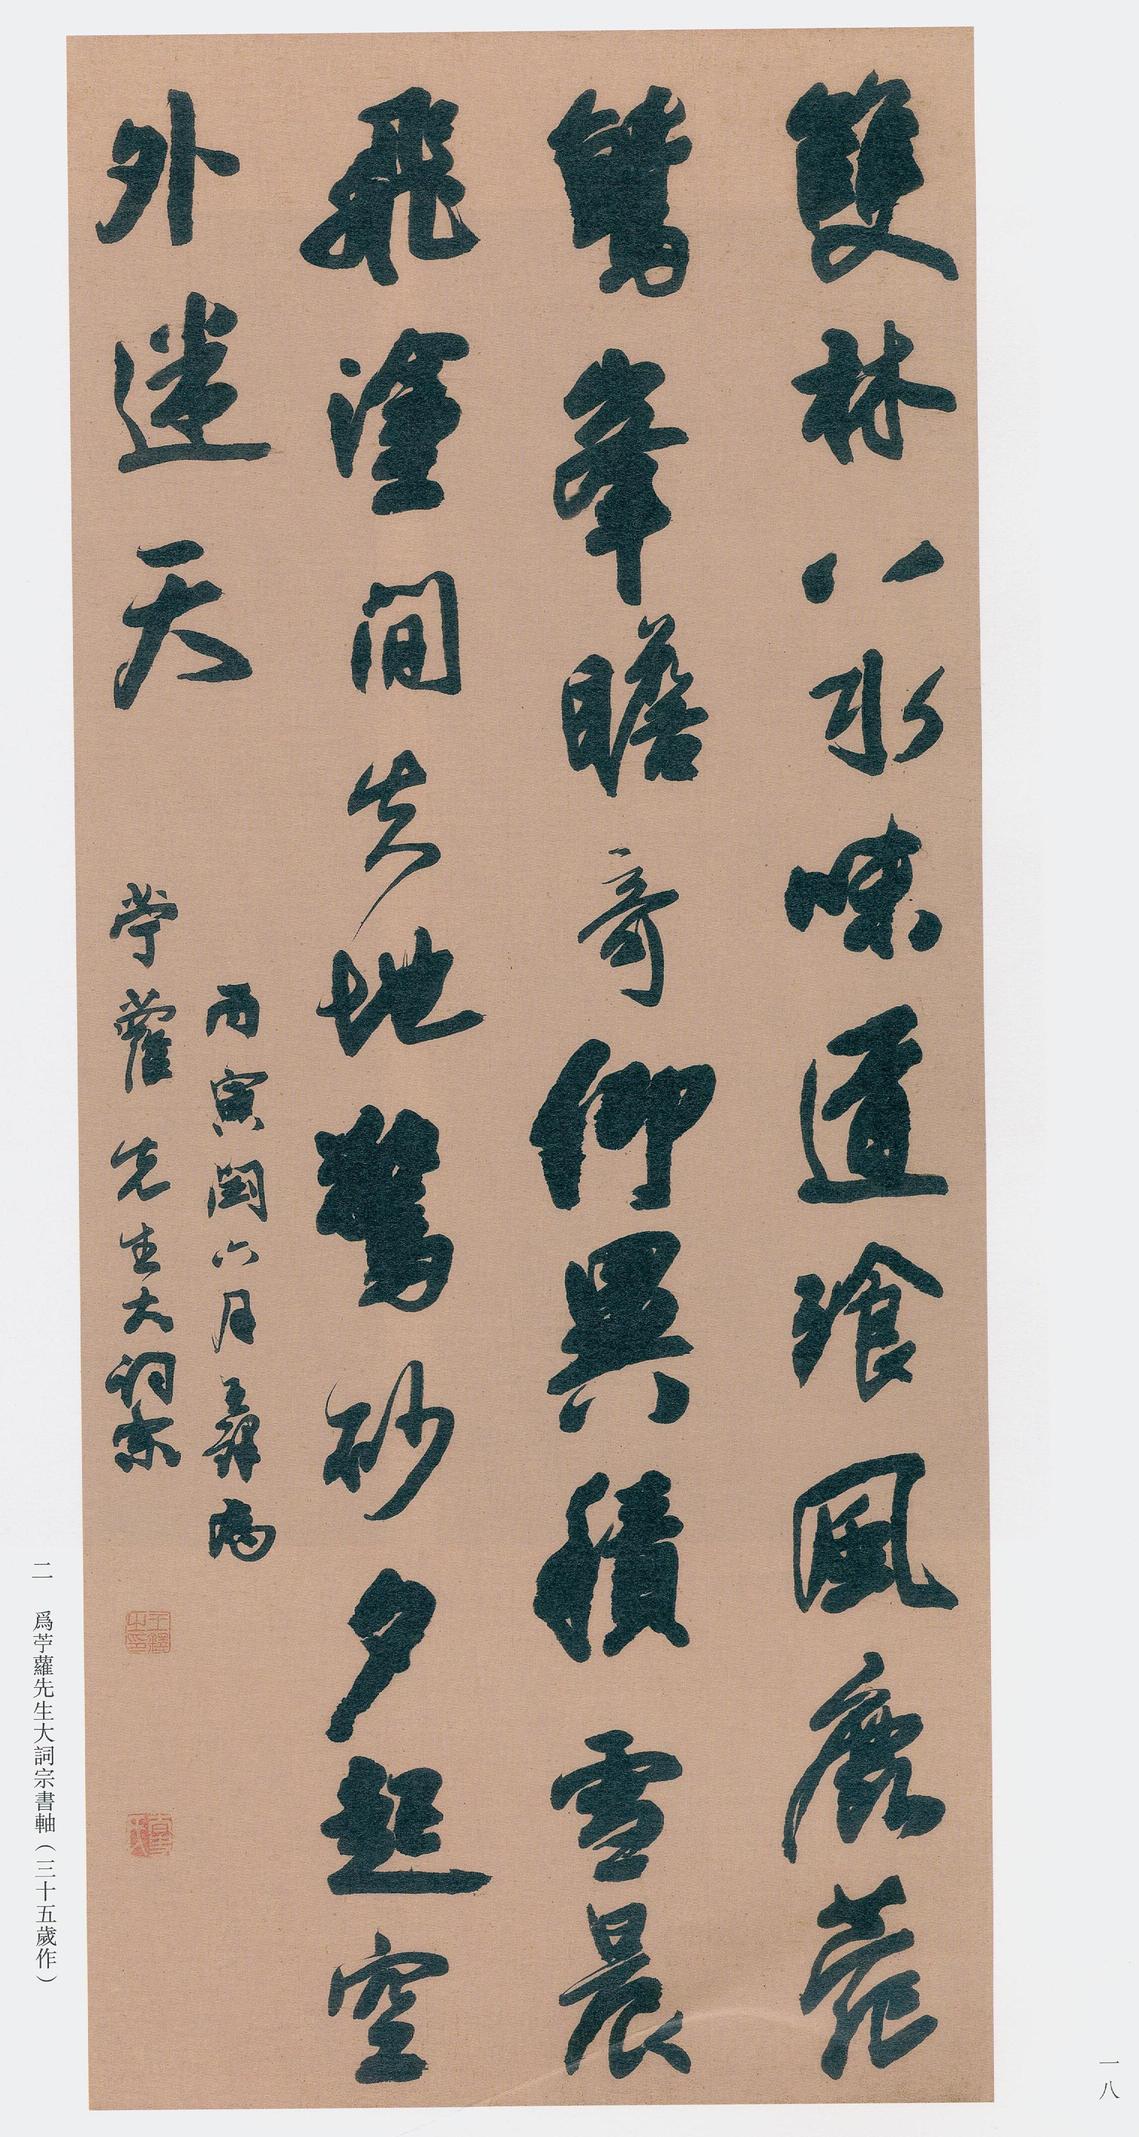 雙林八水味道湌風鹿苑
鷲峯瞻奇仰異積雪晨
飛塗間失地驚砂夕起空
外迷天
丙寅閏六月王鐸為
苧蘿先生大詞宗
王鐸之印
二 爲苧蘿先生大詞宗書軸（三十五歲作）
一八